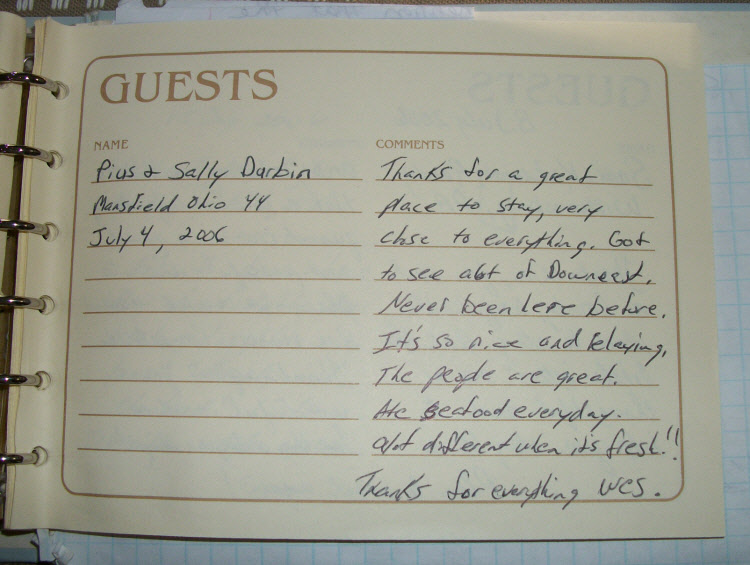 GUESTS
NAME
Pius & Sally Darbin
Mansfield Ohio 44
July 4, 2006
COMMENTS
Thanks for a great
place to stay, very
close to everything. Got
to see alot of Downeast.
Never been here before.
It's so nice and relaxing.
The people are great.
Ate seafood everyday.
alot different when it's fresh!!
Thanks for everything Wes.